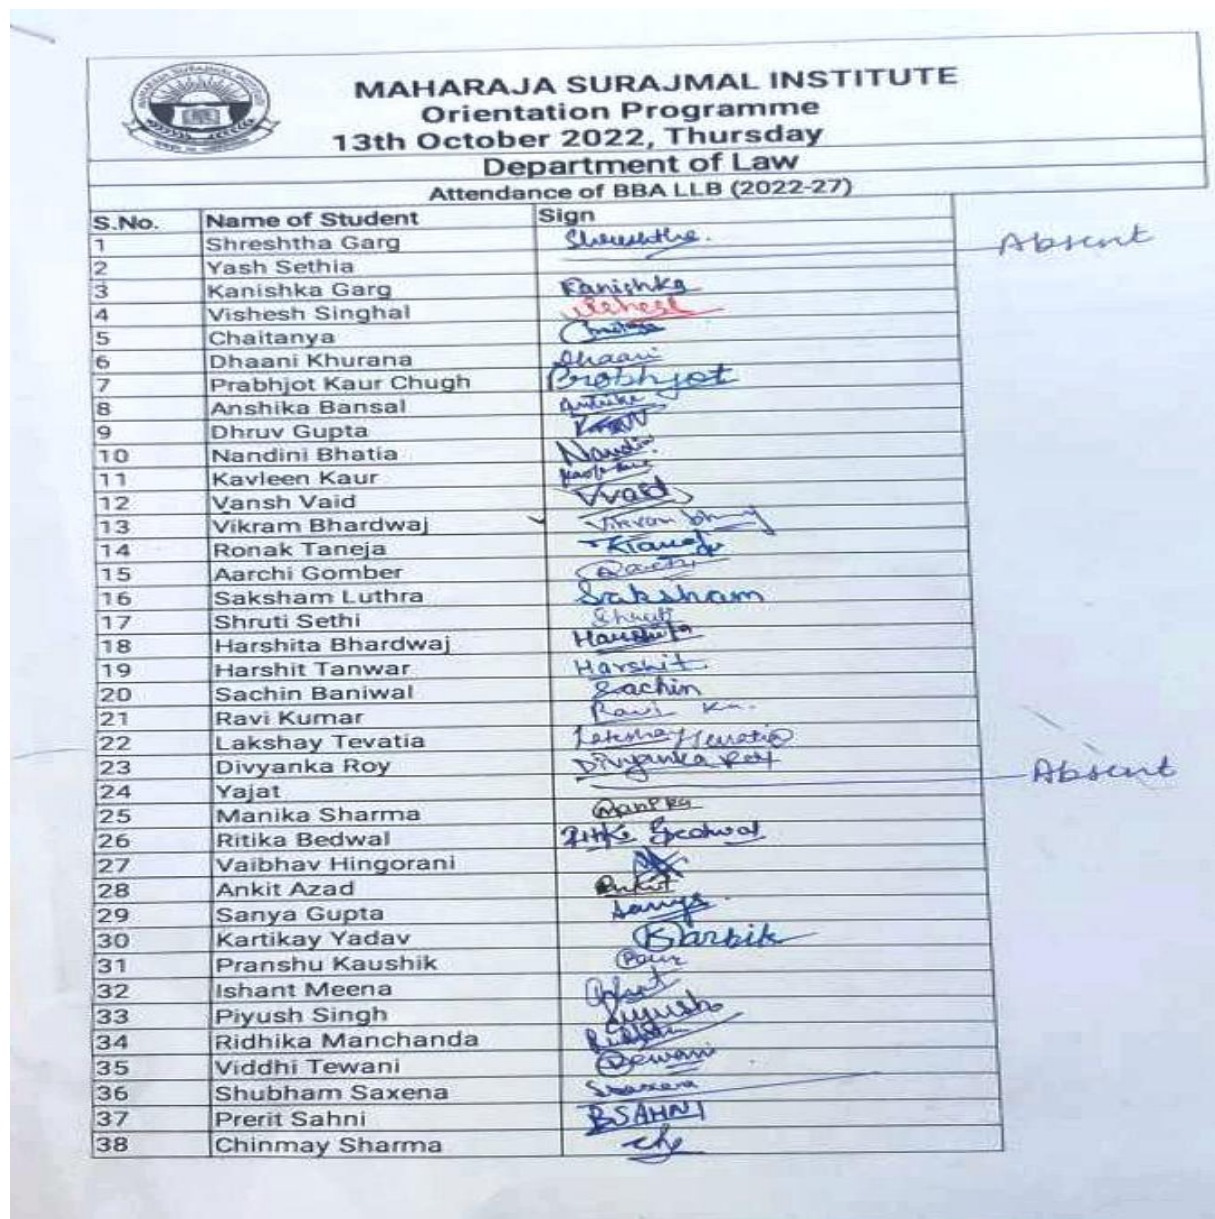 MAHARAJA SURAJMAL INSTITUTE
Orientation Programme
13th October 2022, Thursday
Department of Law
Attendance of BBA LLB (2022-27)
S.No. Name of Student Sign
1 Shreshtha Garg Shreshtha.
2 Yash Sethia Absent
3 Kanishka Garg Kanishka
4 Vishesh Singhal
5 Chaitanya
6 Dhaani Khurana Dhaani
7 Prabhjot Kaur Chugh Prabhjot
8 Anshika Bansal
9 Dhruv Gupta
10 Nandini Bhatia Nandini
11 Kavleen Kaur
12 Vansh Vaid VVaid
13 Vikram Bhardwaj
14 Ronak Taneja
15 Aarchi Gomber
16 Saksham Luthra Saksham
17 Shruti Sethi Shruti
18 Harshita Bhardwaj Harshita
19 Harshit Tanwar Harshit
20 Sachin Baniwal Sachin
21 Ravi Kumar Ravi Ku.
22 Lakshay Tevatia Lakshay Tevatia
23 Divyanka Roy Divyanka Roy
24 Yajat Absent
25 Manika Sharma Manika
26 Ritika Bedwal
27 Vaibhav Hingorani
28 Ankit Azad Ankit
29 Sanya Gupta Sanya
30 Kartikay Yadav Kartik
31 Pranshu Kaushik
32 Ishant Meena
33 Piyush Singh Piyush
34 Ridhika Manchanda
35 Viddhi Tewani
36 Shubham Saxena
37 Prerit Sahni
38 Chinmay Sharma